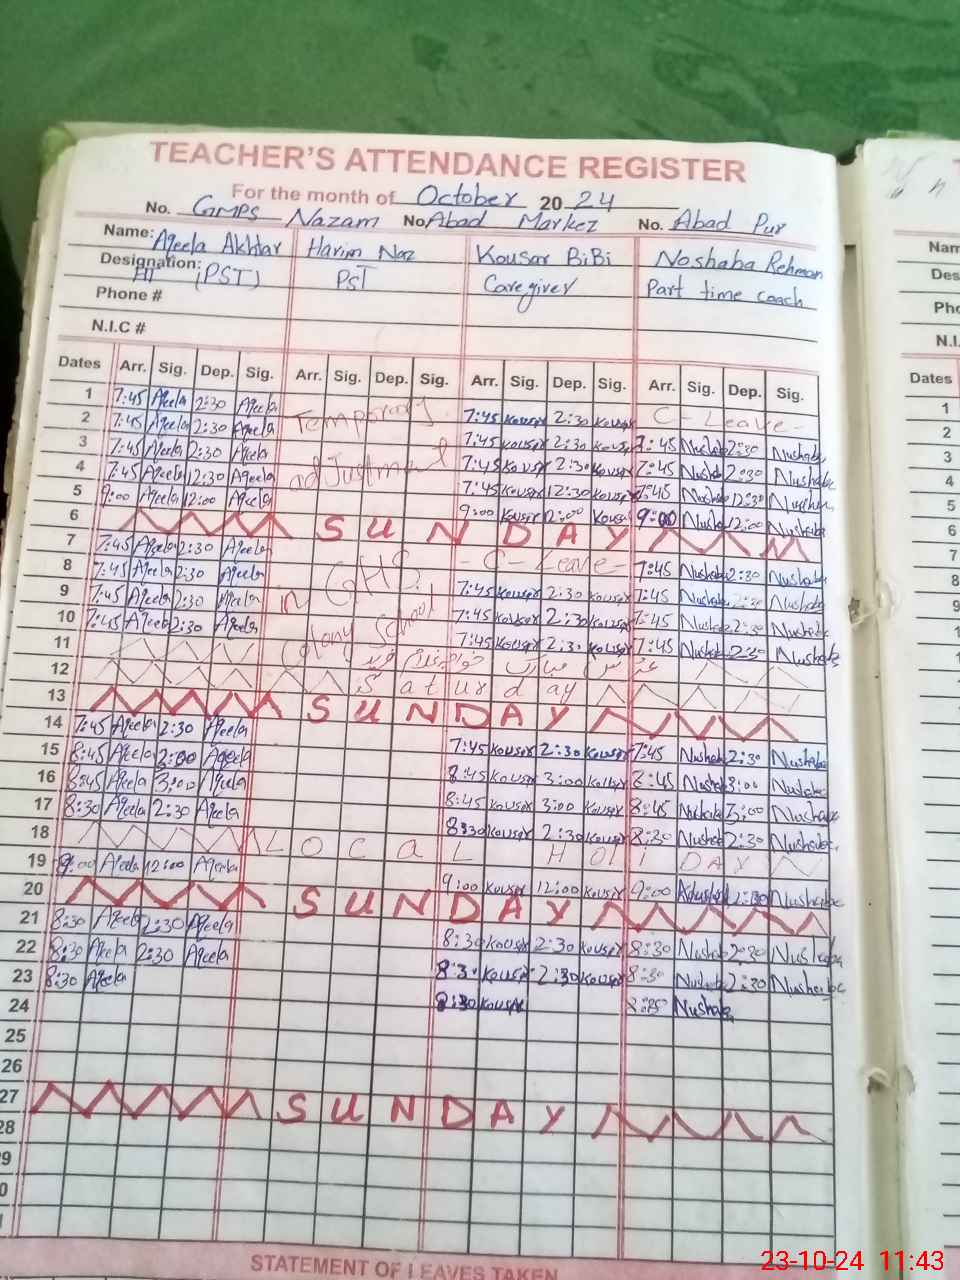 TEACHER'S ATTENDANCE REGISTER
For the month of October 2024
No. GMPS Nazam No. Abad Markez No. Abad Pur
Name: Aqeela Akhtar Harim Naz Kousar BiBi Noshaba Rehman
Designation: (PST) PST Caregiver Part time coach
Phone #
N.I.C #
Dates Arr. Sig. Dep. Sig. Arr. Sig. Dep. Sig. Arr. Sig. Dep. Sig. Arr. Sig. Dep. Sig.
1 7:45 Aqeela 2:30 Aqeela Temporary 7:45 Kousar 2:30 Kousar C - Leave -
2 7:45 Aqeela 2:30 Aqeela 7:45 Kousar 2:30 Kousar 7:45 Nushaba 2:30 Nushaba
3 7:45 Aqeela 2:30 Aqeela adjustment 7:45 Kousar 2:30 Kousar 7:45 Nushaba 2:30 Nushaba
4 7:45 Aqeela 12:30 Aqeela 7:45 Kousar 12:30 Kousar 7:45 Nushaba 12:30 Nushaba
5 9:00 Aqeela 12:00 Aqeela 9:00 Kousar 12:00 Kousar 9:00 Nushaba 12:00 Nushaba
6 SUNDAY
7 7:45 Aqeela 2:30 Aqeela - C - Leave - 7:45 Nushaba 2:30 Nushaba
8 7:45 Aqeela 2:30 Aqeela in GHS 7:45 Kousar 2:30 Kousar 7:45 Nushaba 2:30 Nushaba
9 7:45 Aqeela 2:30 Aqeela 7:45 Kousar 2:30 Kousar 7:45 Nushaba 2:30 Nushaba
10 7:45 Aqeela 2:30 Aqeela Colony School 7:45 Kousar 2:30 Kousar 7:45 Nushaba 2:30 Nushaba
11 عرس مبارک خواجہ غلام فرید
12 Saturday
13 SUNDAY
14 7:45 Aqeela 2:30 Aqeela 7:45 Kousar 2:30 Kousar 7:45 Nushaba 2:30 Nushaba
15 8:45 Aqeela 3:00 Aqeela 8:45 Kousar 3:00 Kousar 8:45 Nushaba 3:00 Nushaba
16 8:45 Aqeela 3:00 Aqeela 8:45 Kousar 3:00 Kousar 8:45 Nushaba 3:00 Nushaba
17 8:30 Aqeela 2:30 Aqeela 8:30 Kousar 2:30 Kousar 8:30 Nushaba 2:30 Nushaba
18 LOCAL HOLIDAY
19 9:00 Aqeela 12:00 Aqeela 9:00 Kousar 12:00 Kousar 9:00 Nushaba 12:00 Nushaba
20 SUNDAY
21 8:30 Aqeela 2:30 Aqeela 8:30 Kousar 2:30 Kousar 8:30 Nushaba 2:30 Nushaba
22 8:30 Aqeela 2:30 Aqeela 8:30 Kousar 2:30 Kousar 8:30 Nushaba 2:30 Nushaba
23 8:30 Aqeela 8:30 Kousar Nushaba
24
25
26
27 SUNDAY
28
29
STATEMENT OF LEAVES TAKEN
Dates
1
2
3
4
5
6
7
8
9
23-10-24 11:43